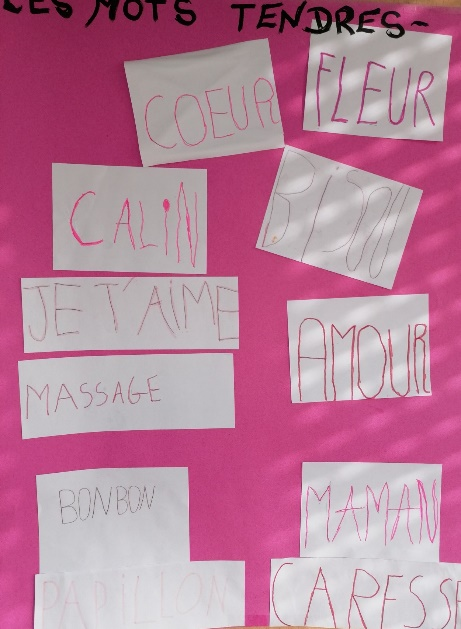 LES MOTS TENDRES-
COEUR
FLEUR
CALiN
BISOU
JE T'AiME
AMOUR
MASSAGE
BONBON
MAMAN
PAPILLON
CARESSE